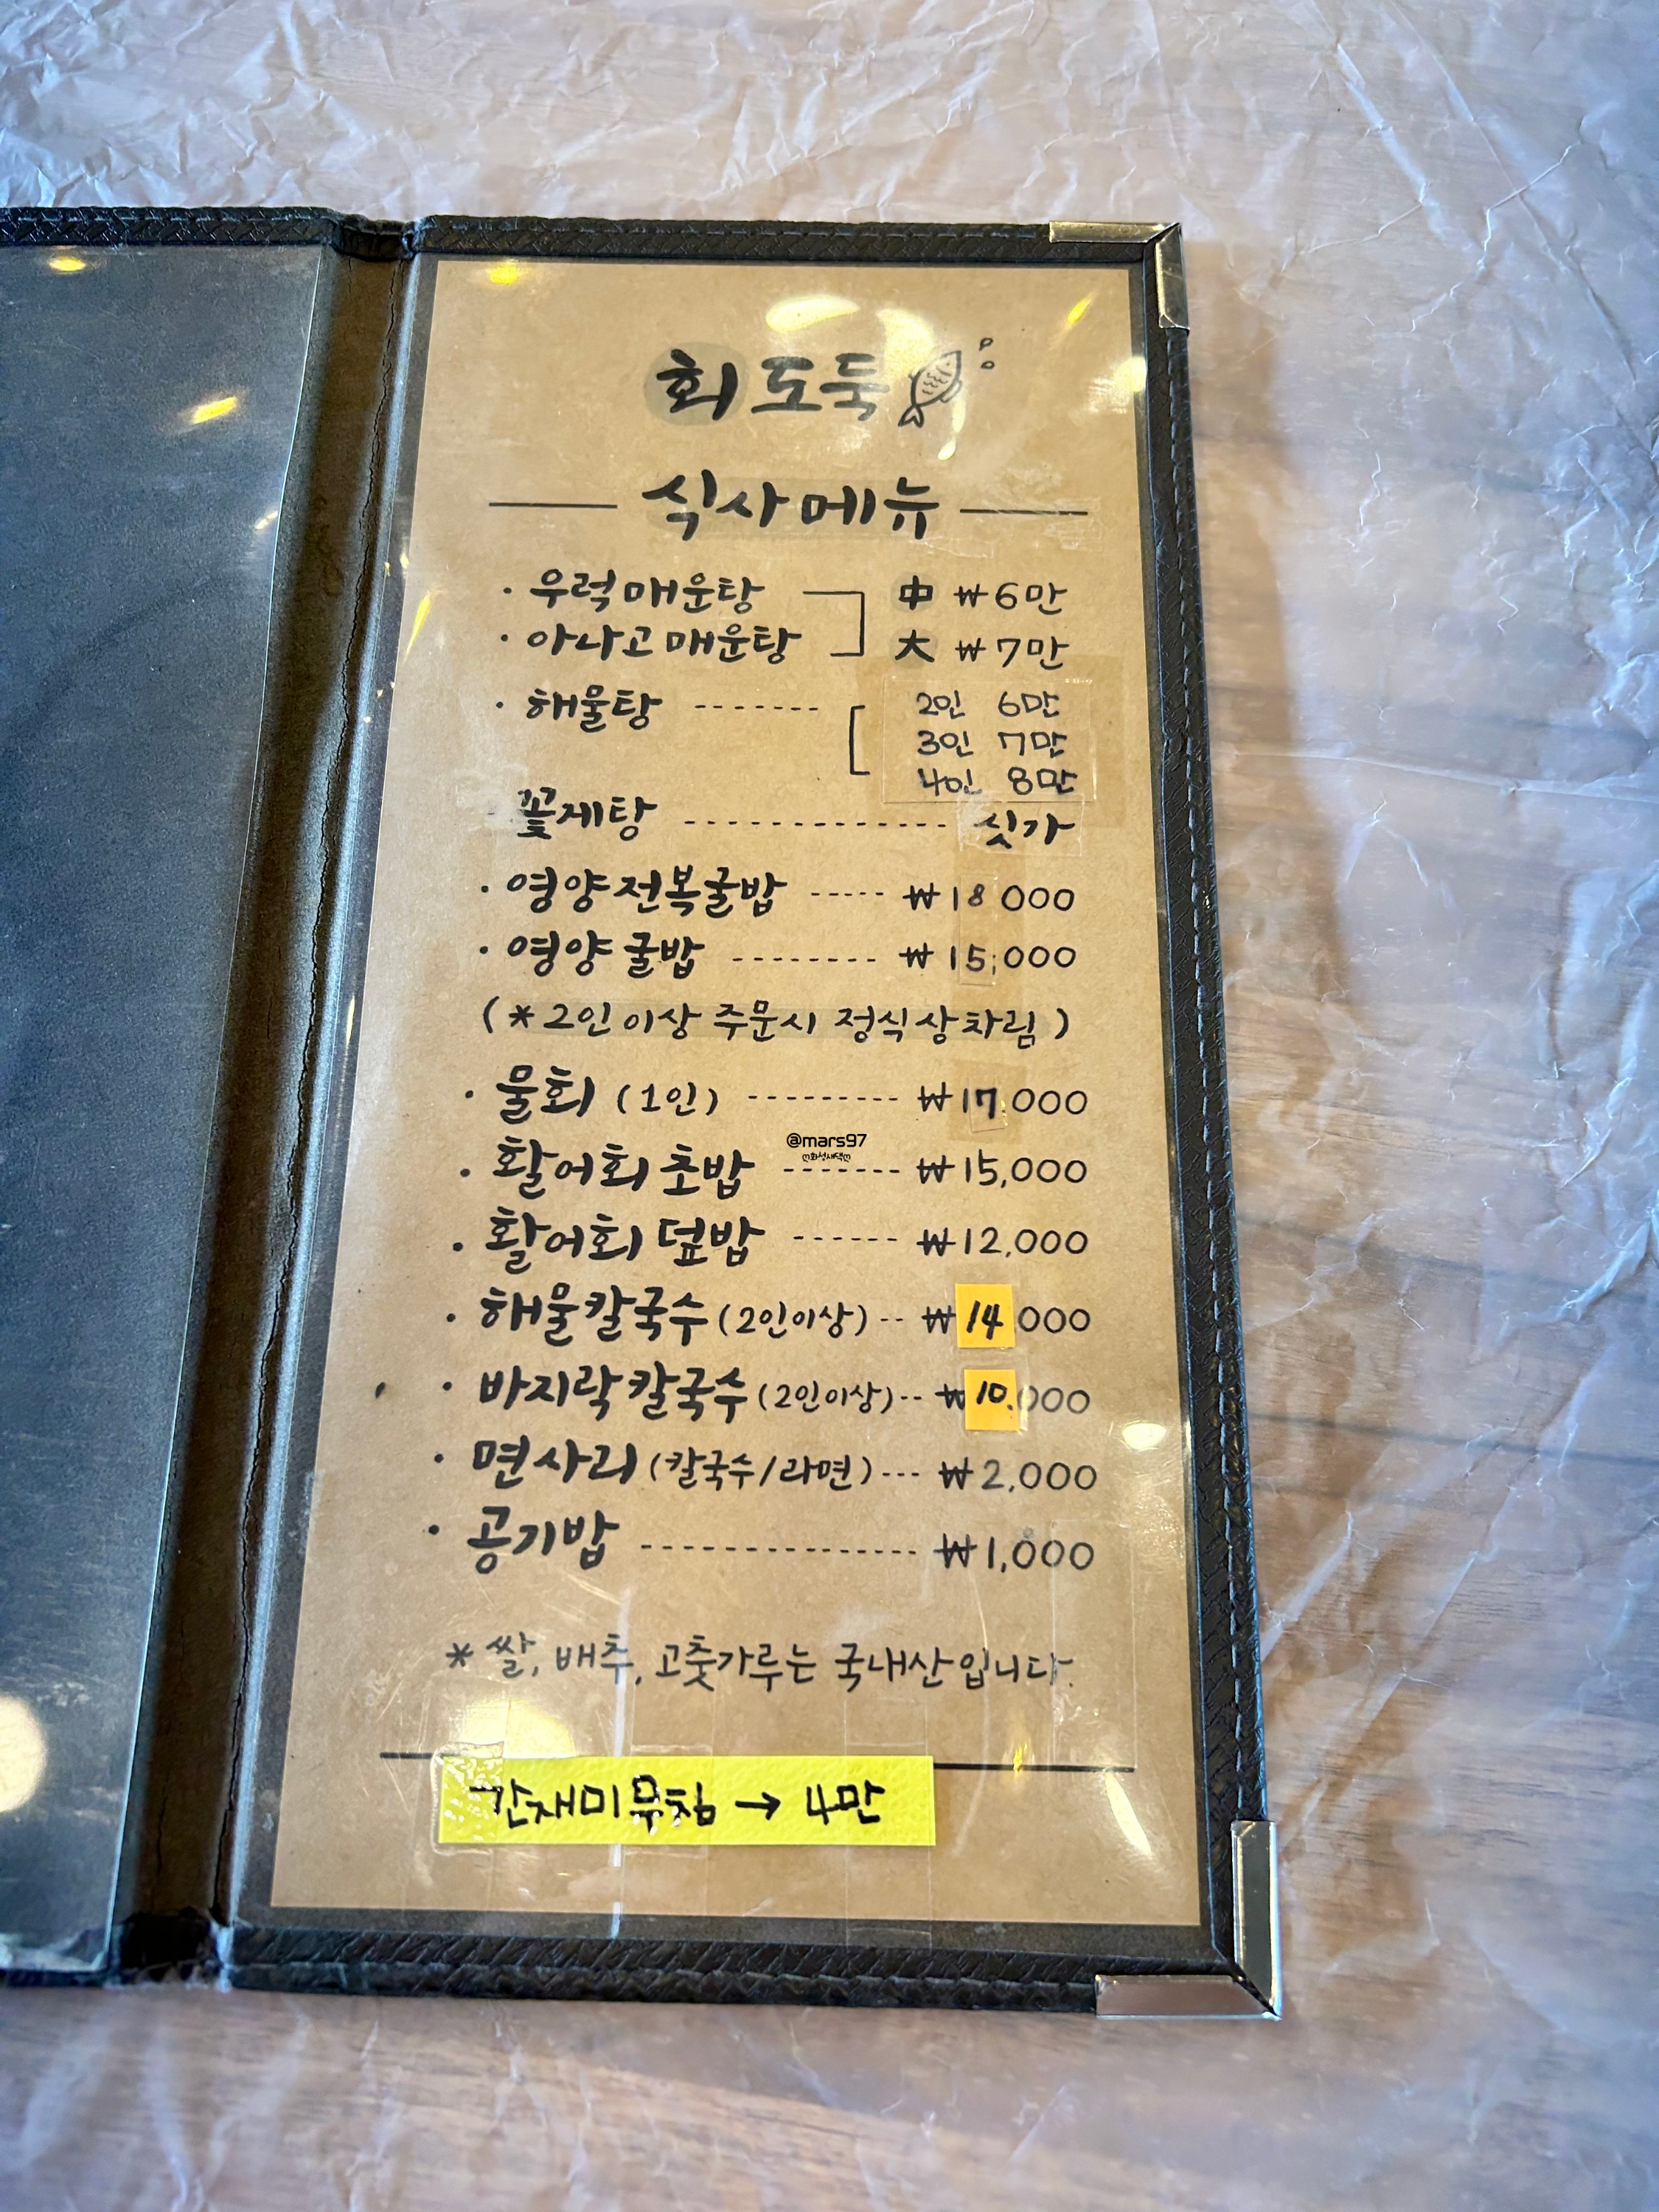 회도둑
식사메뉴
· 우럭매운탕 中 ₩6만
· 아나고매운탕 大 ₩7만
· 해물탕 ------- 2인 6만
3인 7만
4인 8만
꽃게탕 ------------- 싯가
· 영양전복굴밥 ----- ₩18 000
· 영양굴밥 -------- ₩15,000
(*2인이상 주문시 정식상차림)
· 물회 (1인) --------- ₩17.000
@mars97
ღ화성새댁ღ
· 활어회 초밥 ------- ₩15,000
· 활어회 덮밥 ------ ₩12,000
· 해물칼국수 (2인이상) -- ₩14,000
· 바지락칼국수 (2인이상) -- ₩10.000
· 면사리 (칼국수/라면) --- ₩2,000
· 공기밥 --------------- ₩1,000
* 쌀, 배추, 고춧가루는 국내산입니다.
간재미무침 → 4만